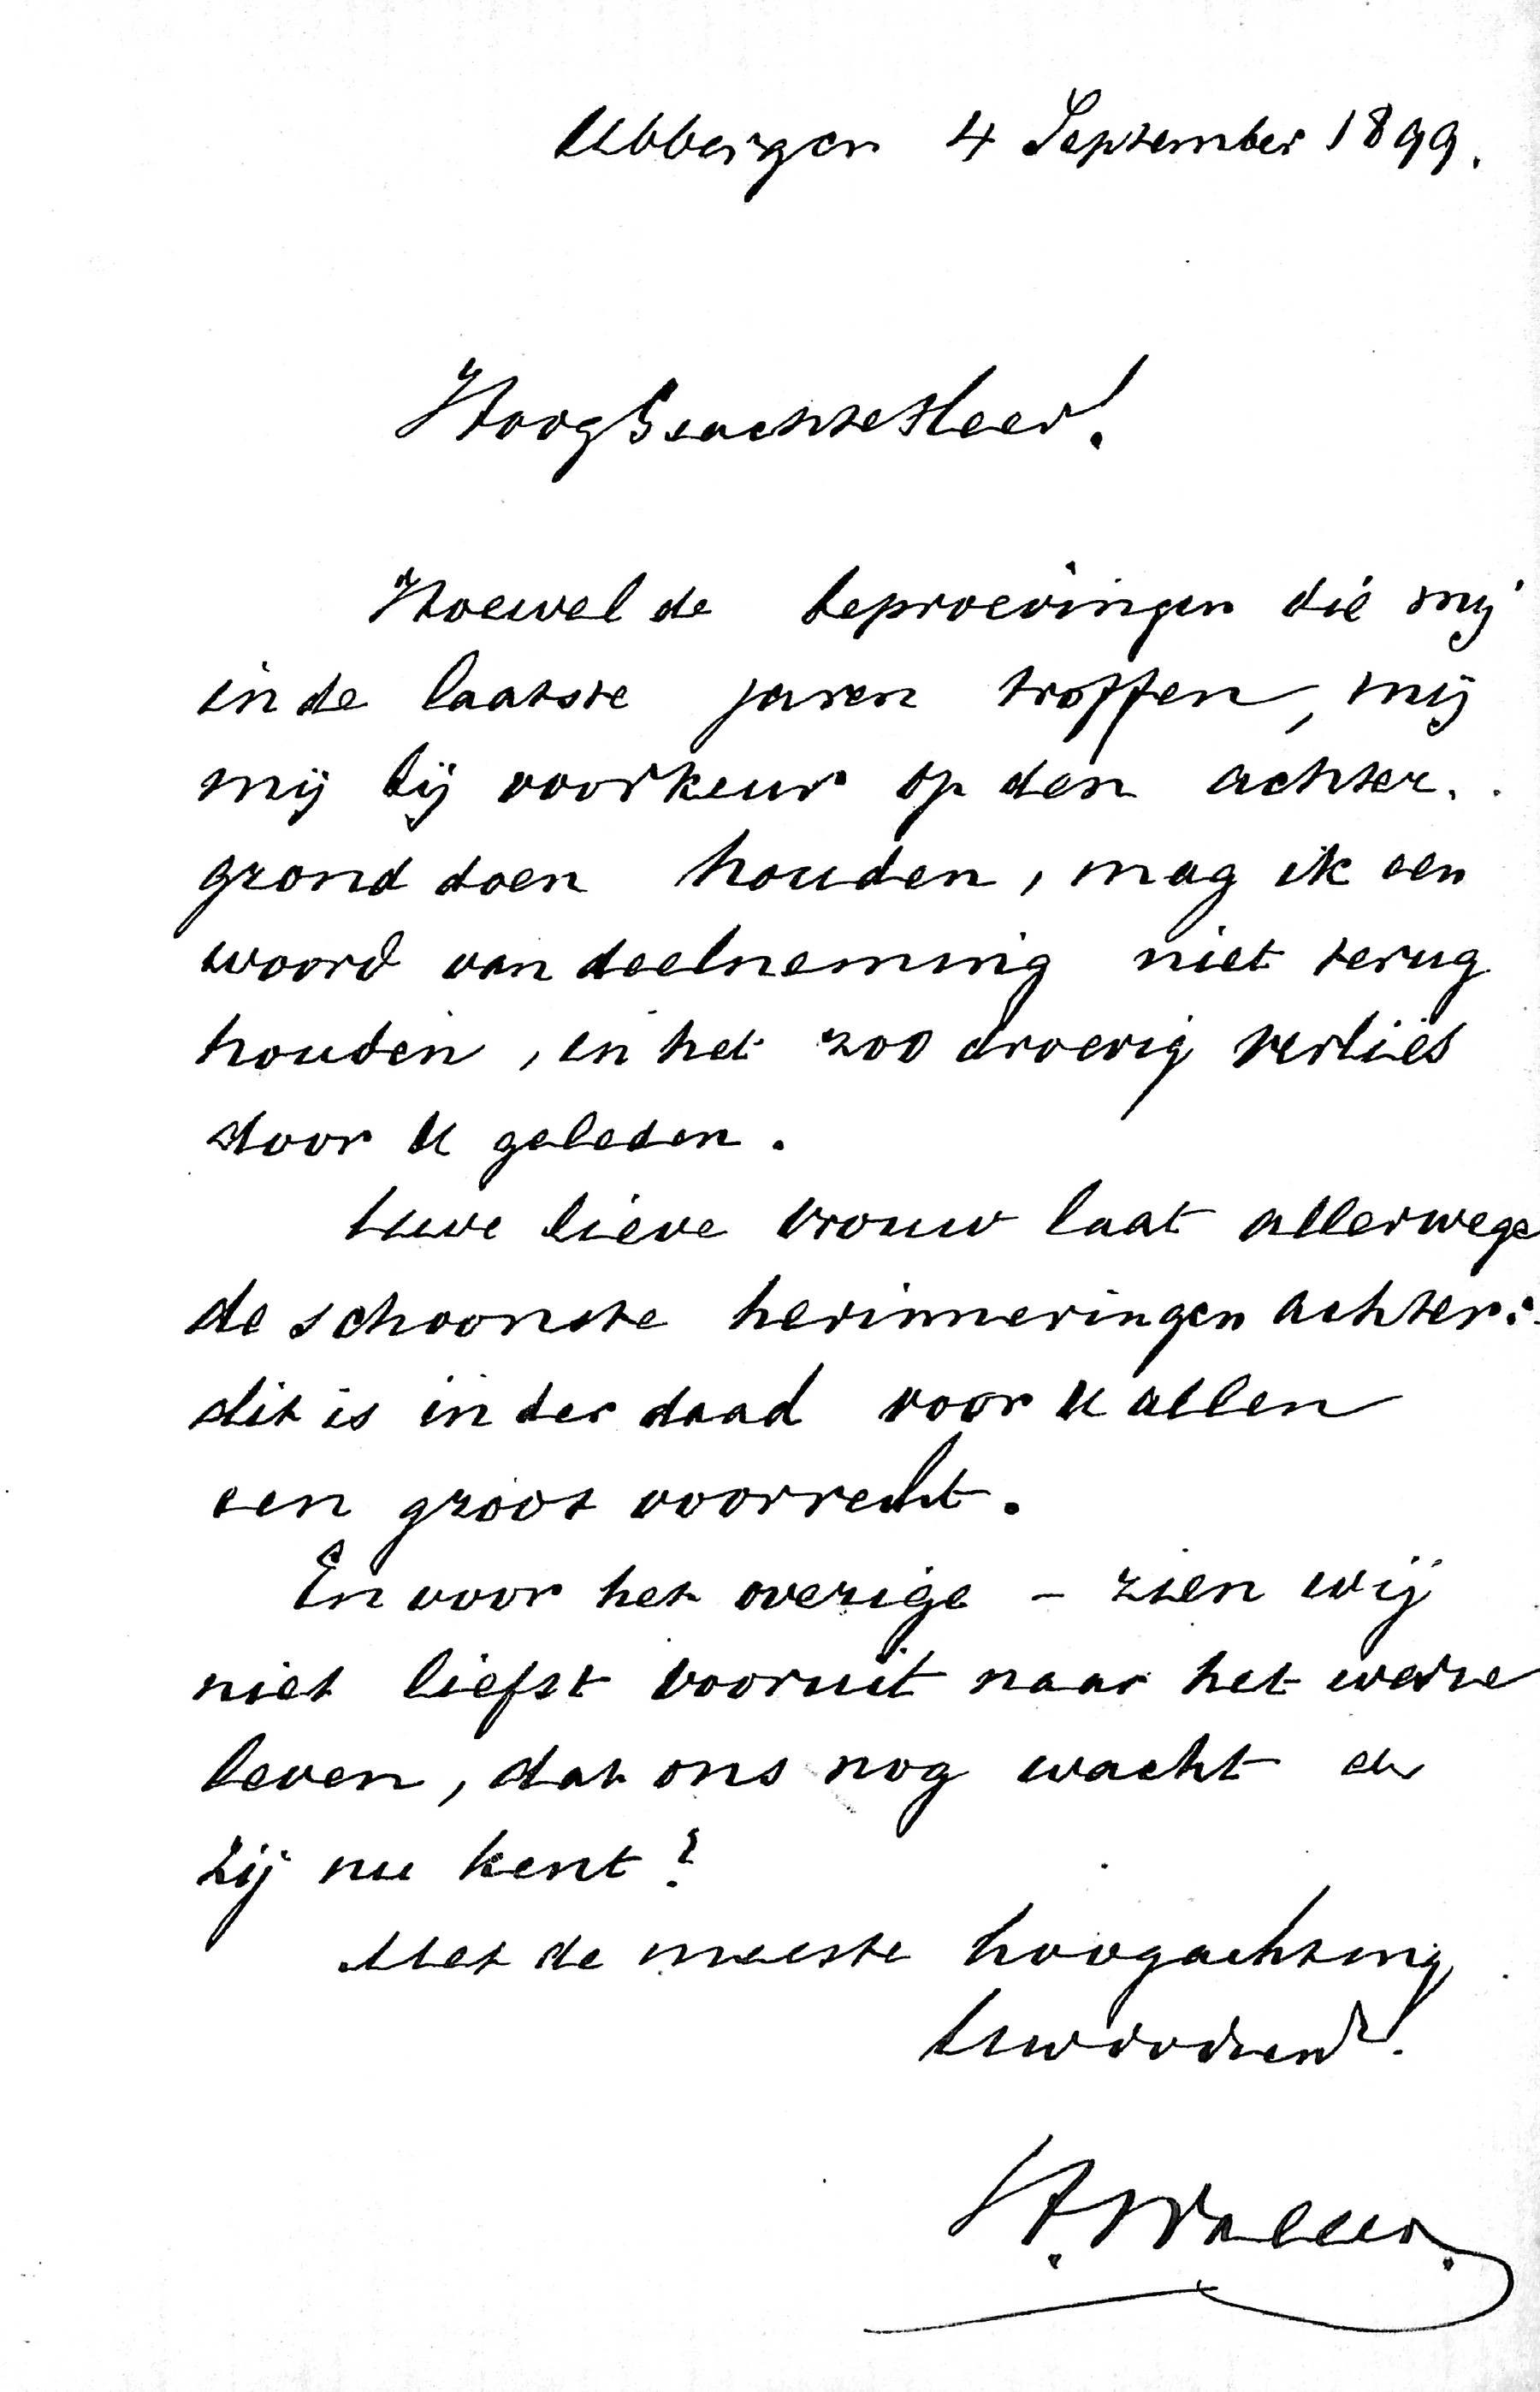 Ubbergen 4 September 1899.
HoogGeachte Heer!
Hoewel de beproevingen die mij
in de laatste jaren troffen, mij
mij bij voorkeur op den achter.
grond doen houden, mag ik een
woord van deelneming niet terug
houden, in het zoo droevig verlies
door U geleden.
Uwe lieve vrouw laat allerwege
de schoonste herinneringen achter:
dit is in der daad voor U allen
een groot voorrecht.
En voor het overige – zien wij
niet liefst vooruit naar het ware
leven, dat ons nog wacht en
zij nu kent?
Met de meeste hoogachting
Uwdvdienr.
H. Waller.